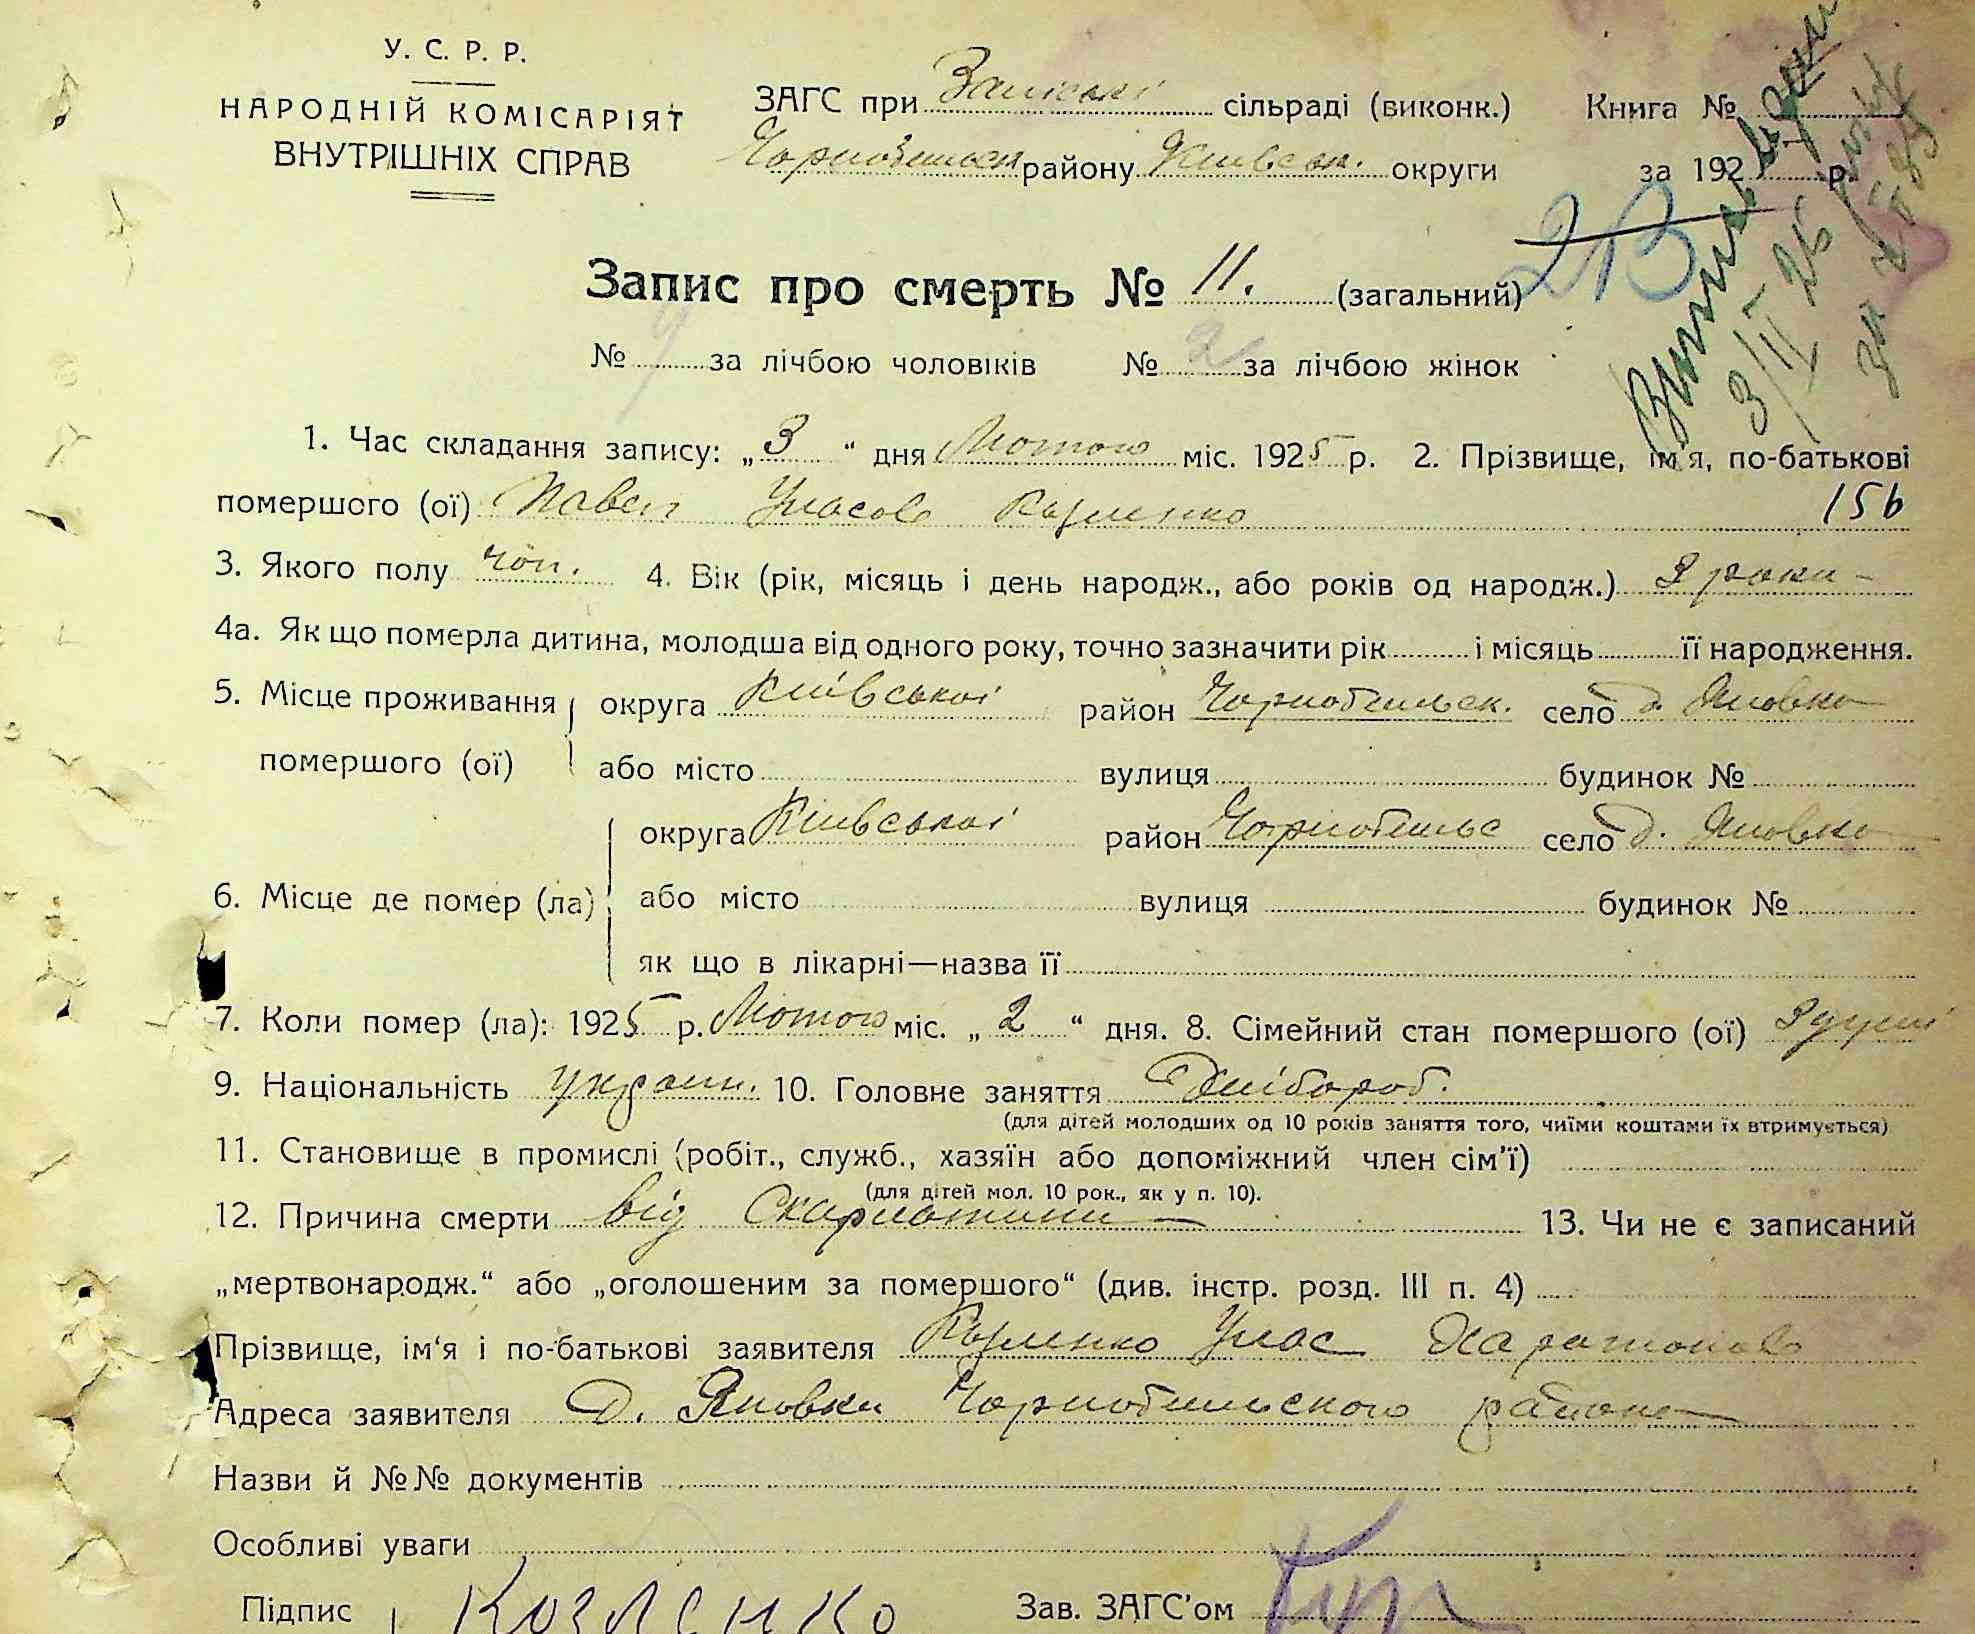 У. С. Р. Р.
НАРОДНІЙ КОМІСАРІЯТ
ВНУТРІШНІХ СПРАВ
ЗАГС при сільраді (виконк.) Книга №
Чорнобильск району Київськ. округи за 192 р.
213
Запис про смерть № 11. (загальний)
№ 9 за лічбою чоловіків № 2 за лічбою жінок
1. Час складання запису: „3“ дня Лютого міс. 1925 р. 2. Прізвище, ім'я, по-батькові
помершого (ої) Павел Уласов Козленко 156
3. Якого полу чол. 4. Вік (рік, місяць і день народж., або років од народж.) роки -
4а. Як що померла дитина, молодша від одного року, точно зазначити рік і місяць її народження.
5. Місце проживання округа Київської район Чорнобильск. село д. Яновка
помершого (ої) або місто вулиця будинок №
округа Київської район Чорнобильс село д. Яновка
6. Місце де помер (ла) або місто вулиця будинок №
як що в лікарні—назва її
7. Коли помер (ла): 1925 р. Лютого міс. „2“ дня. 8. Сімейний стан помершого (ої)
9. Національність україн. 10. Головне заняття Хлібороб.
(для дітей молодших од 10 років заняття того, чиїми коштами їх втримується)
11. Становище в промислі (робіт., служб., хазяїн або допоміжний член сім'ї)
(для дітей мол. 10 рок., як у п. 10).
12. Причина смерти від Скарлатини 13. Чи не є записаний
„мертвонародж.“ або „оголошеним за помершого“ (див. інстр. розд. III п. 4)
Прізвище, ім'я і по-батькові заявителя Козленко Улас Харитонов
Адреса заявителя д. Яновки Чорнобильского района
Назви й №№ документів
Особливі уваги
Підпис Козленко Зав. ЗАГС'ом